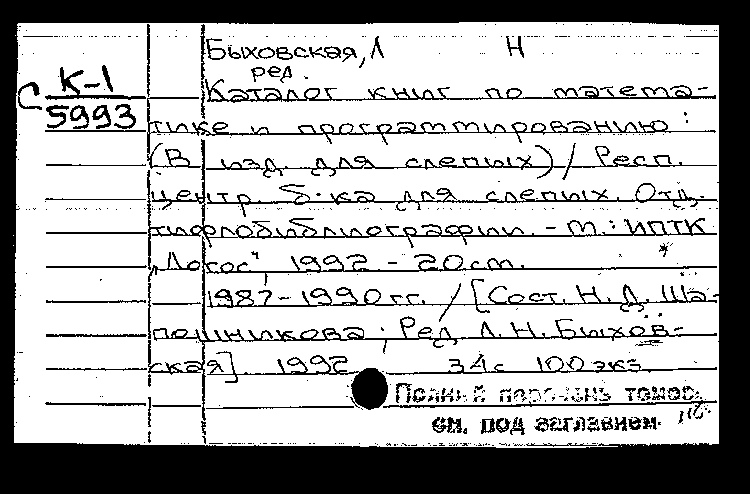 Быховская, Л Н
ред.
С К-1
5993
Каталог книг по матема-
тике и программированию:
(В изд. для слепых) / Респ.
центр. б-ка для слепых. Отд.
тифлобиблиографии. - М.: ИПТК
„Логос“, 1992 - 20 см. *
1987-1990 гг. / [Сост. Н. Д. Ша-
пошникова; Ред. Л. Н. Быхов-
ская]. 1992 34 с 100 экз.
Полный перечень томов
см. под заглавием.